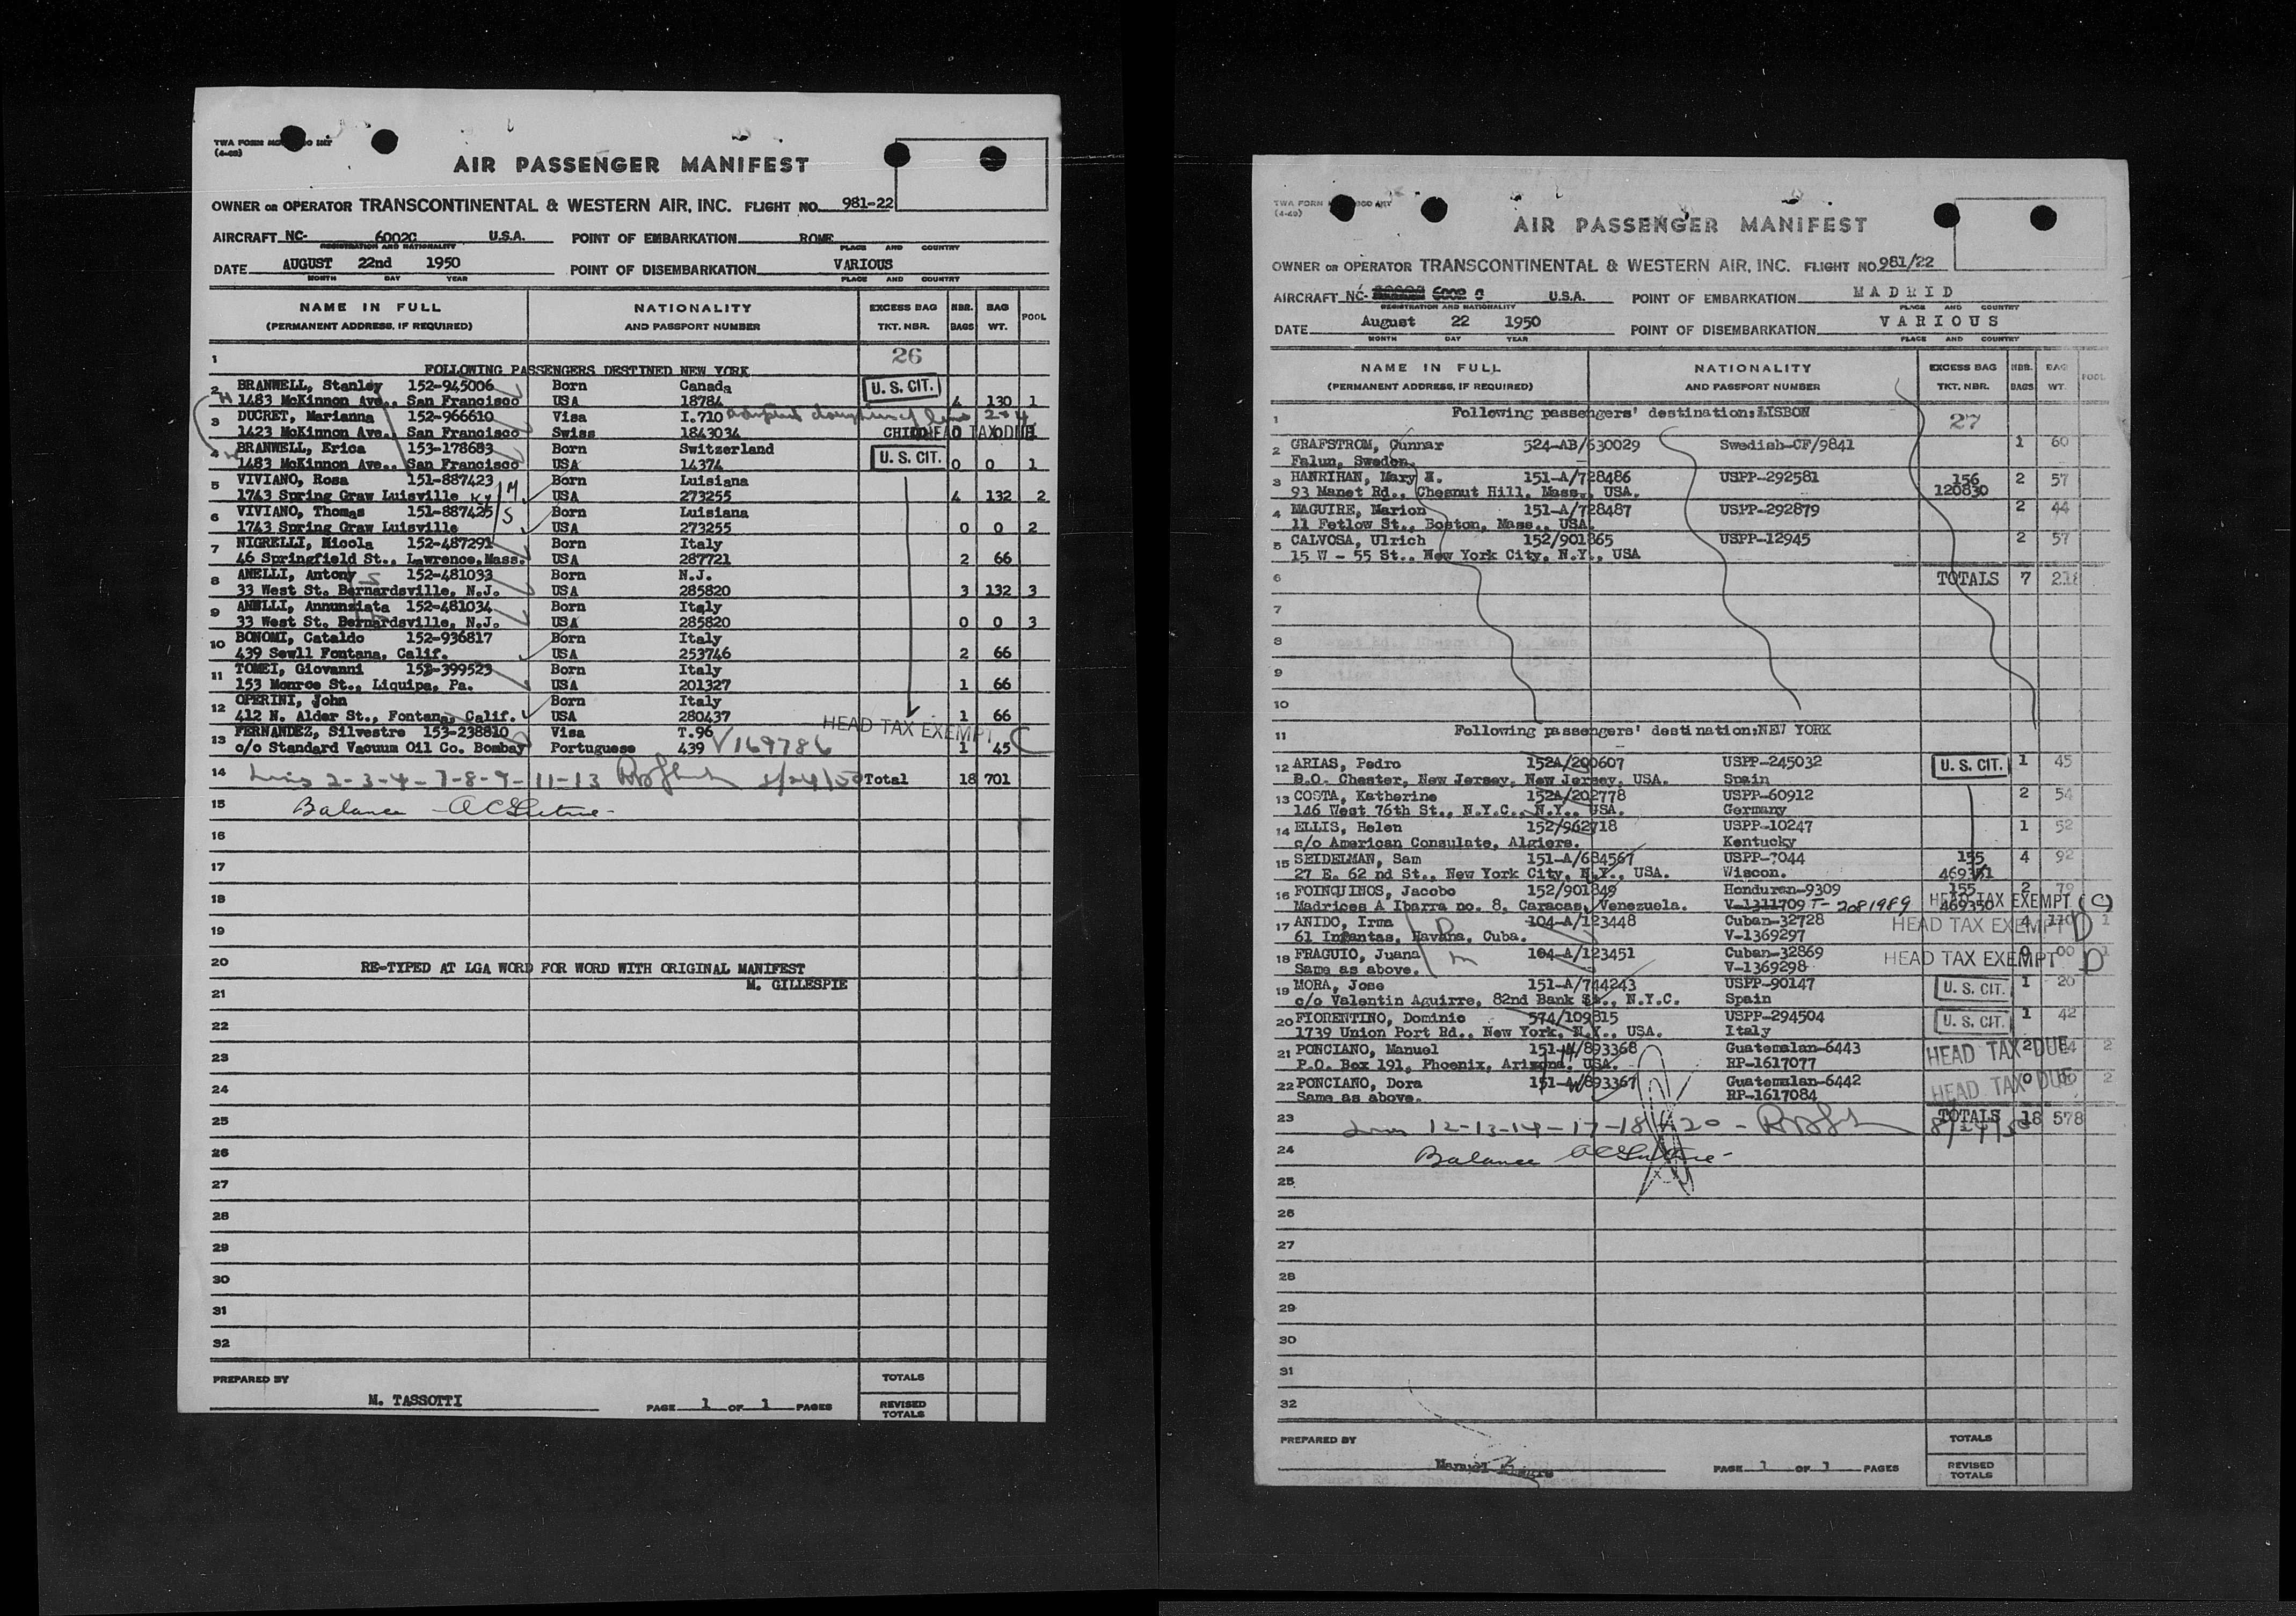 (4-48)
AIR PASSENGER MANIFEST
OWNER OR OPERATOR TRANSCONTINENTAL & WESTERN AIR, INC. FLIGHT NO. 981-22
AIRCRAFT NC- 6002C U.S.A. POINT OF EMBARKATION ROME
REGISTRATION AND NATIONALITY PLACE AND COUNTRY
DATE AUGUST 22nd 1950 POINT OF DISEMBARKATION VARIOUS
MONTH DAY YEAR PLACE AND COUNTRY
NAME IN FULL NATIONALITY EXCESS BAG NBR. BAG POOL
(PERMANENT ADDRESS, IF REQUIRED) AND PASSPORT NUMBER TKT. NBR. BAGS WT.
1 26
FOLLOWING PASSENGERS DESTINED NEW YORK
2 BRANWELL, Stanley 152-945006 Born Canada U. S. CIT.
1483 McKinnon Ave., San Francisco USA 18784 4 130 1
3 DUCRET, Marianna 152-966610 Visa I.710 adopted daughter of line 2 & 4
1423 McKinnon Ave., San Francisco Swiss 1843034 CHILD HEAD TAX DUE 0 0 1
4 BRANWELL, Erica 153-178683 Born Switzerland U. S. CIT.
1483 McKinnon Ave., San Francisco USA 14374 0 0 1
5 VIVIANO, Rosa 151-887423 Born Luisiana
1743 Spring Graw Luisville Ky M USA 273255 4 132 2
6 VIVIANO, Thomas 151-887425 Born Luisiana
1743 Spring Graw Luisville S USA 273255 0 0 2
7 NIGRELLI, Nicola 152-487291 Born Italy
46 Springfield St., Lawrence, Mass. USA 287721 2 66
8 ANELLI, Antony 152-481033 Born N.J.
33 West St. Bernardsville, N.J. USA 285820 3 132 3
9 ANELLI, Annunziata 152-481034 Born Italy
33 West St. Bernardsville, N.J. USA 285820 0 0 3
10 BONOMI, Cataldo 152-936817 Born Italy
439 Sewll Fontana, Calif. USA 253746 2 66
11 TOMEI, Giovanni 152-399523 Born Italy
153 Monroe St., Liquipa, Pa. USA 201327 1 66
12 OPERINI, John Born Italy
412 N. Alder St., Fontana, Calif. USA 280437 1 66
HEAD TAX EXEMPT C
13 FERNANDEZ, Silvestre 153-238810 Visa T.96
c/o Standard Vacuum Oil Co. Bombay Portuguese 439 V169786 1 45
14 Lines 2-3-4-7-8-9-11-13 8/24/50 Total 18 701
15 Balance
16
17
18
19
20 RE-TYPED AT LGA WORD FOR WORD WITH ORIGINAL MANIFEST
21 M. GILLESPIE
22
23
24
25
26
27
28
29
30
31
32
PREPARED BY TOTALS
M. TASSOTTI PAGE 1 OF 1 PAGES REVISED TOTALS
(4-48)
AIR PASSENGER MANIFEST
OWNER OR OPERATOR TRANSCONTINENTAL & WESTERN AIR, INC. FLIGHT NO. 981/22
AIRCRAFT NC- 6002 C U.S.A. POINT OF EMBARKATION MADRID
REGISTRATION AND NATIONALITY PLACE AND COUNTRY
DATE August 22 1950 POINT OF DISEMBARKATION VARIOUS
MONTH DAY YEAR PLACE AND COUNTRY
NAME IN FULL NATIONALITY EXCESS BAG NBR. BAG POOL
(PERMANENT ADDRESS, IF REQUIRED) AND PASSPORT NUMBER TKT. NBR. BAGS WT.
1 Following passengers' destination:LISBON 27
2 GRAFSTROM, Gunnar 524-AB/630029 Swedish-CF/9841 1 60
Falun, Sweden.
3 HANRIHAN, Mary H. 151-A/728486 USPP-292581 156 2 57
93 Manet Rd., Chesnut Hill, Mass., USA. 120830
4 MAGUIRE, Marion 151-A/728487 USPP-292879 2 44
11 Fetlow St., Boston, Mass., USA.
5 CALVOSA, Ulrich 152/901865 USPP-12945 2 57
15 W - 55 St., New York City, N.Y., USA
6 TOTALS 7 218
7
8
9
10
11 Following passengers' destination:NEW YORK
12 ARIAS, Pedro 152A/200607 USPP-245032 U. S. CIT. 1 45
B.O. Chester, New Jersey, New Jersey, USA. Spain
13 COSTA, Katherine 152A/202778 USPP-60912 2 54
146 West 76th St., N.Y.C., N.Y., USA. Germany
14 ELLIS, Helen 152/962718 USPP-10247 1 52
c/o American Consulate, Algiers. Kentucky
15 SEIDELMAN, Sam 151-A/684567 USPP-7044 155 4 92
27 E. 62 nd St., New York City, N.Y., USA. Wiscon. 469351
16 FOINQUINOS, Jacobo 152/901849 Honduran-9309 155 2 79
Madrices A Ibarra no. 8, Caracas, Venezuela. V-1311709 T-2081989 469350 HEAD TAX EXEMPT (C)
17 ANIDO, Irma 104-A/123448 Cuban-32728 HEAD TAX EXEMPT 4 110 D 1
61 Infantas, Havana, Cuba. V-1369297
18 FRAGUIO, Juana 104-A/123451 Cuban-32869 HEAD TAX EXEMPT 0 00 D 1
Same as above. V-1369298
19 MORA, Jose 151-A/744243 USPP-90147 U. S. CIT. 1 20
c/o Valentin Aguirre, 82nd Bank St., N.Y.C. Spain
20 FIORENTINO, Dominic 574/109815 USPP-294504 U. S. CIT. 1 42
1739 Union Port Rd., New York, N.Y., USA. Italy
21 PONCIANO, Manuel 151-A/893368 Guatemalan-6443 HEAD TAX DUE 2 2
P.O. Box 191, Phoenix, Arizona, USA. RP-1617077
22 PONCIANO, Dora 151-A/893367 Guatemalan-6442 HEAD TAX DUE 0 2
Same as above. RP-1617084
23 Lines 12-13-14-17-18 20 - 8/24/50 TOTALS 18 578
24 Balance
25
26
27
28
29
30
31
32
PREPARED BY TOTALS
PAGE 1 OF 1 PAGES REVISED TOTALS